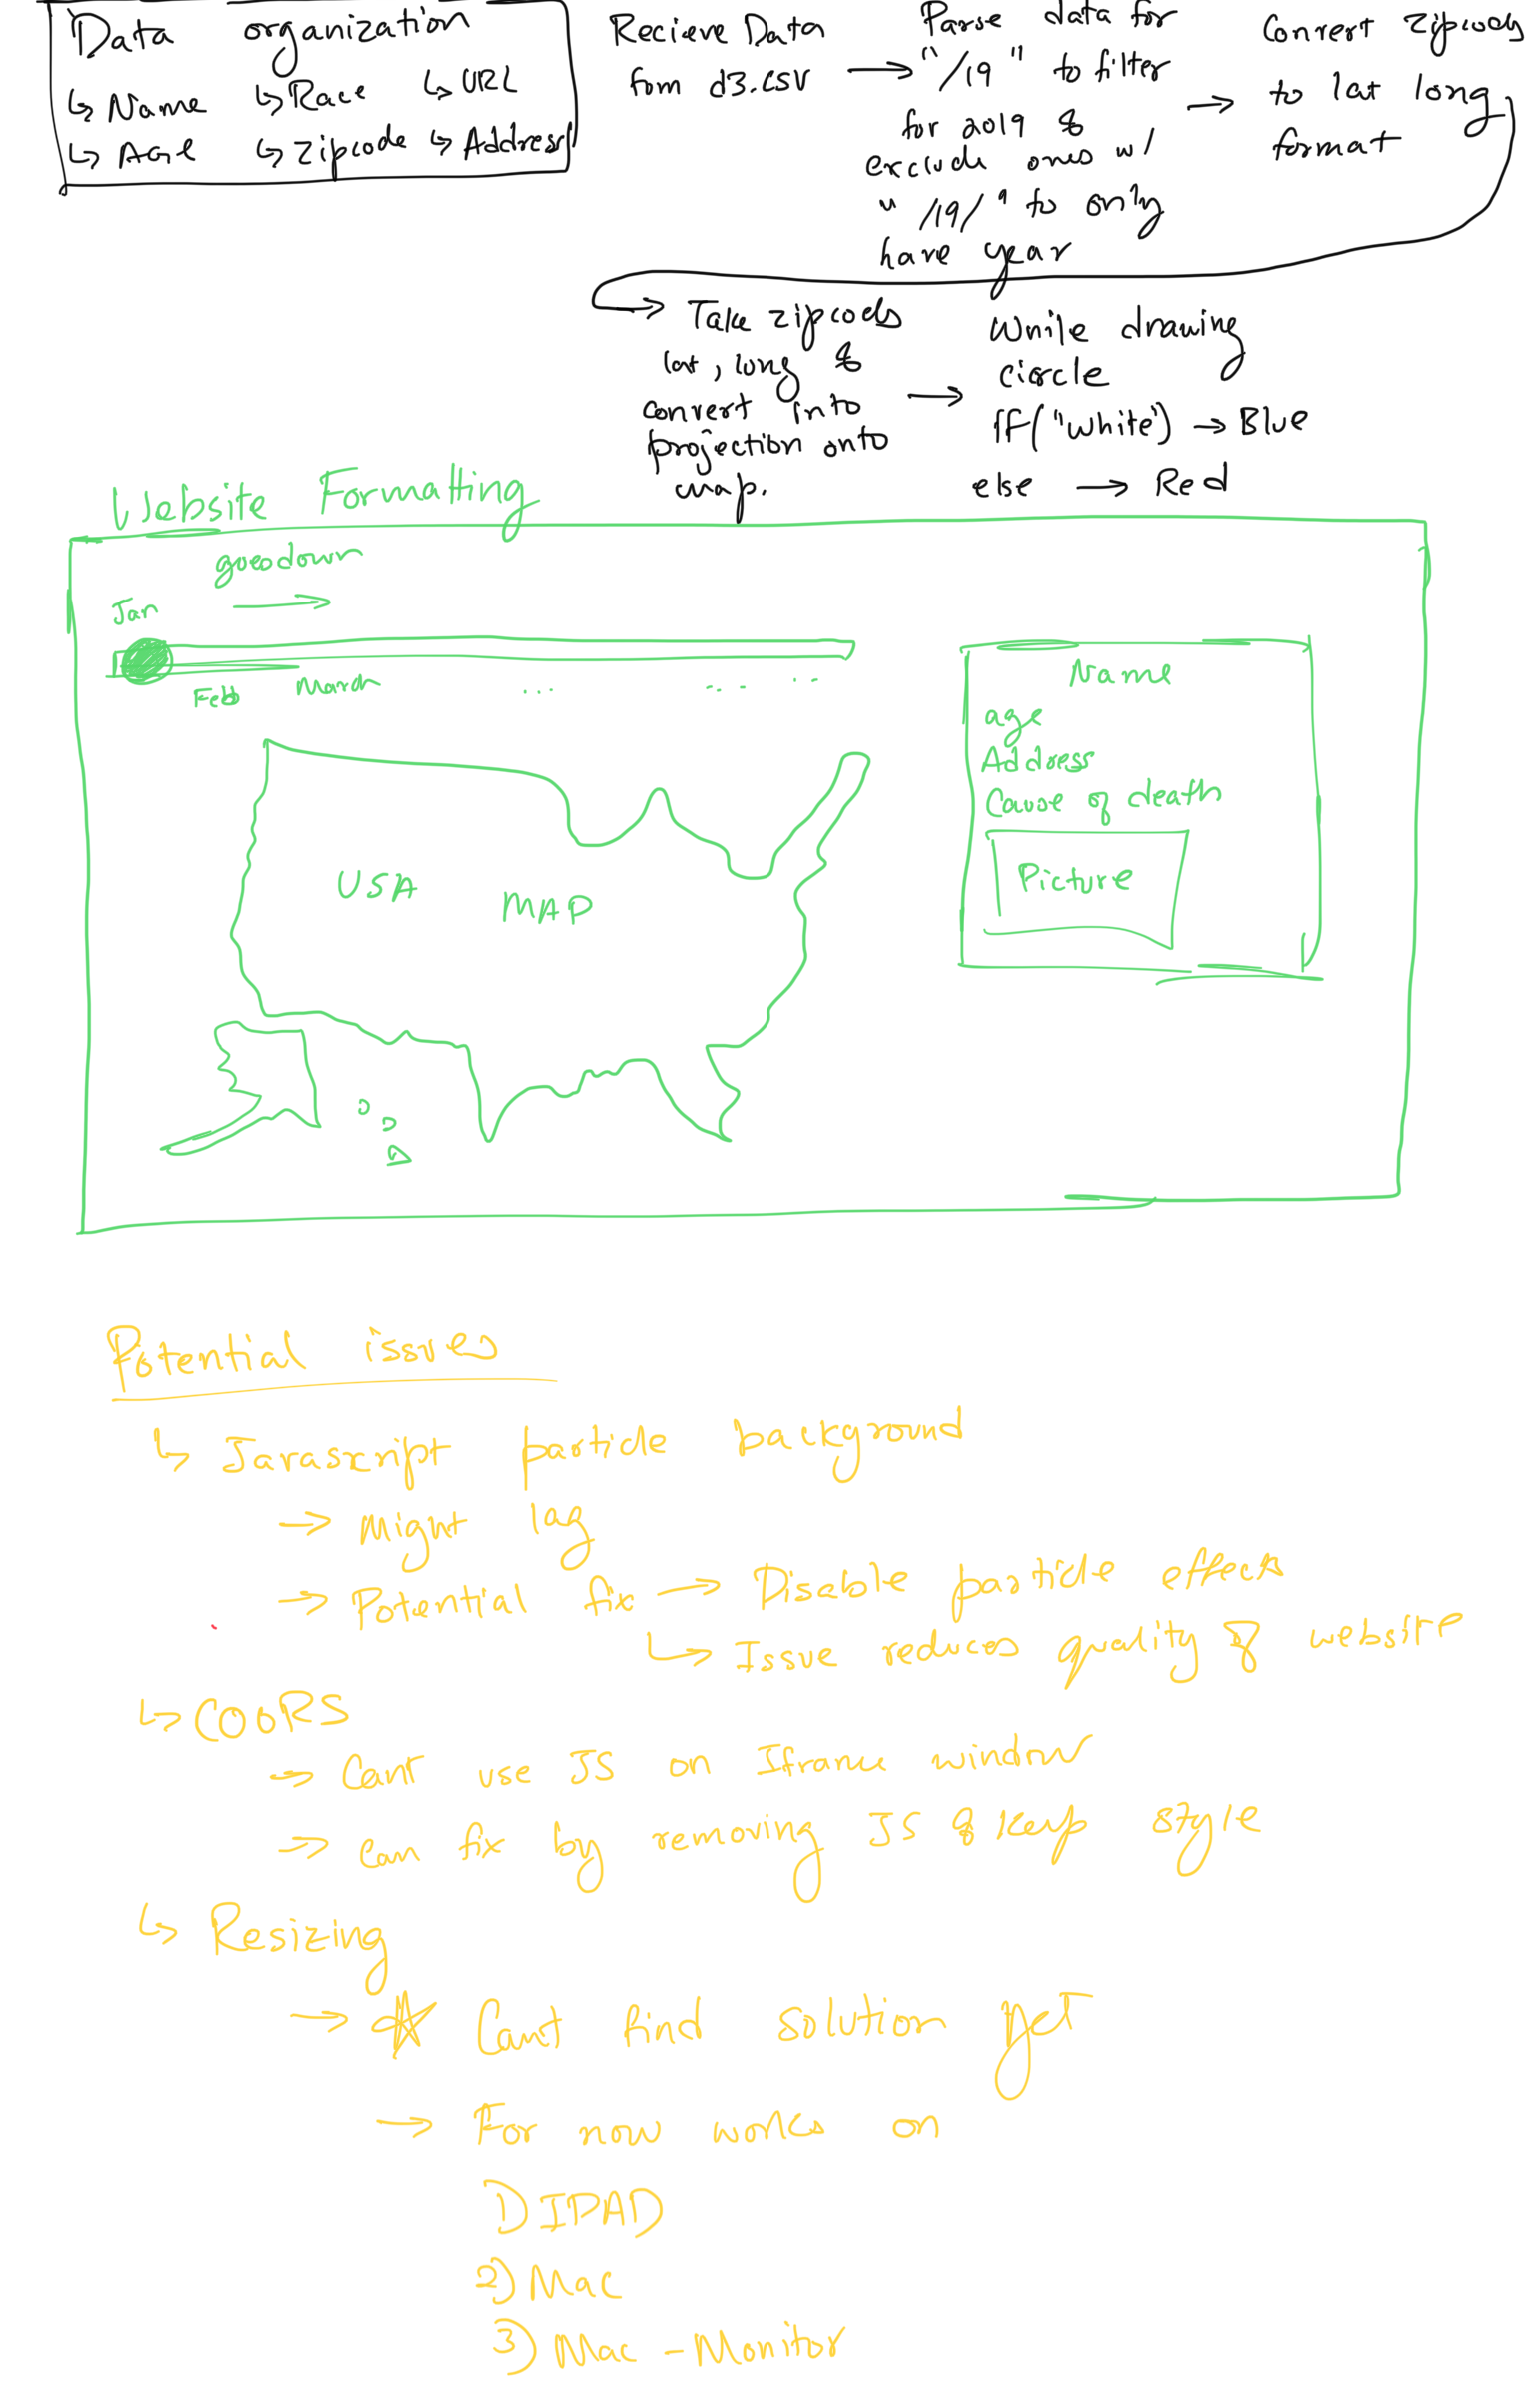 Data organization
↳ Name ↳ Race ↳ URL
↳ Age ↳ Zipcode ↳ Address
Recieve Data
from d3.csv
→
Parse data for
"/19" to filter
for 2019 &
exclude ones w/
"/19/" to only
have year
→
Convert zipcods
to lat long
format
→ Take zipcods
lat, long &
convert into
projection onto
map.
→
While drawing
circle
if("white") → Blue
else → Red
Website Formatting
Jan
→
Feb March ... ... ..
USA MAP
Name
age
Address
Cause of death
Picture
Potential issues
↳ Javascript particle background
→ Might lag
→ Potential fix → Disable particle effect
↳ Issue reduces quality of website
↳ COORS
→ Cant use JS on Iframe window
→ Can fix by removing JS & keep style
↳ Resizing
→ ☆ Cant find solution yet
→ For now works on
1) IPAD
2) Mac
3) Mac - Monitor